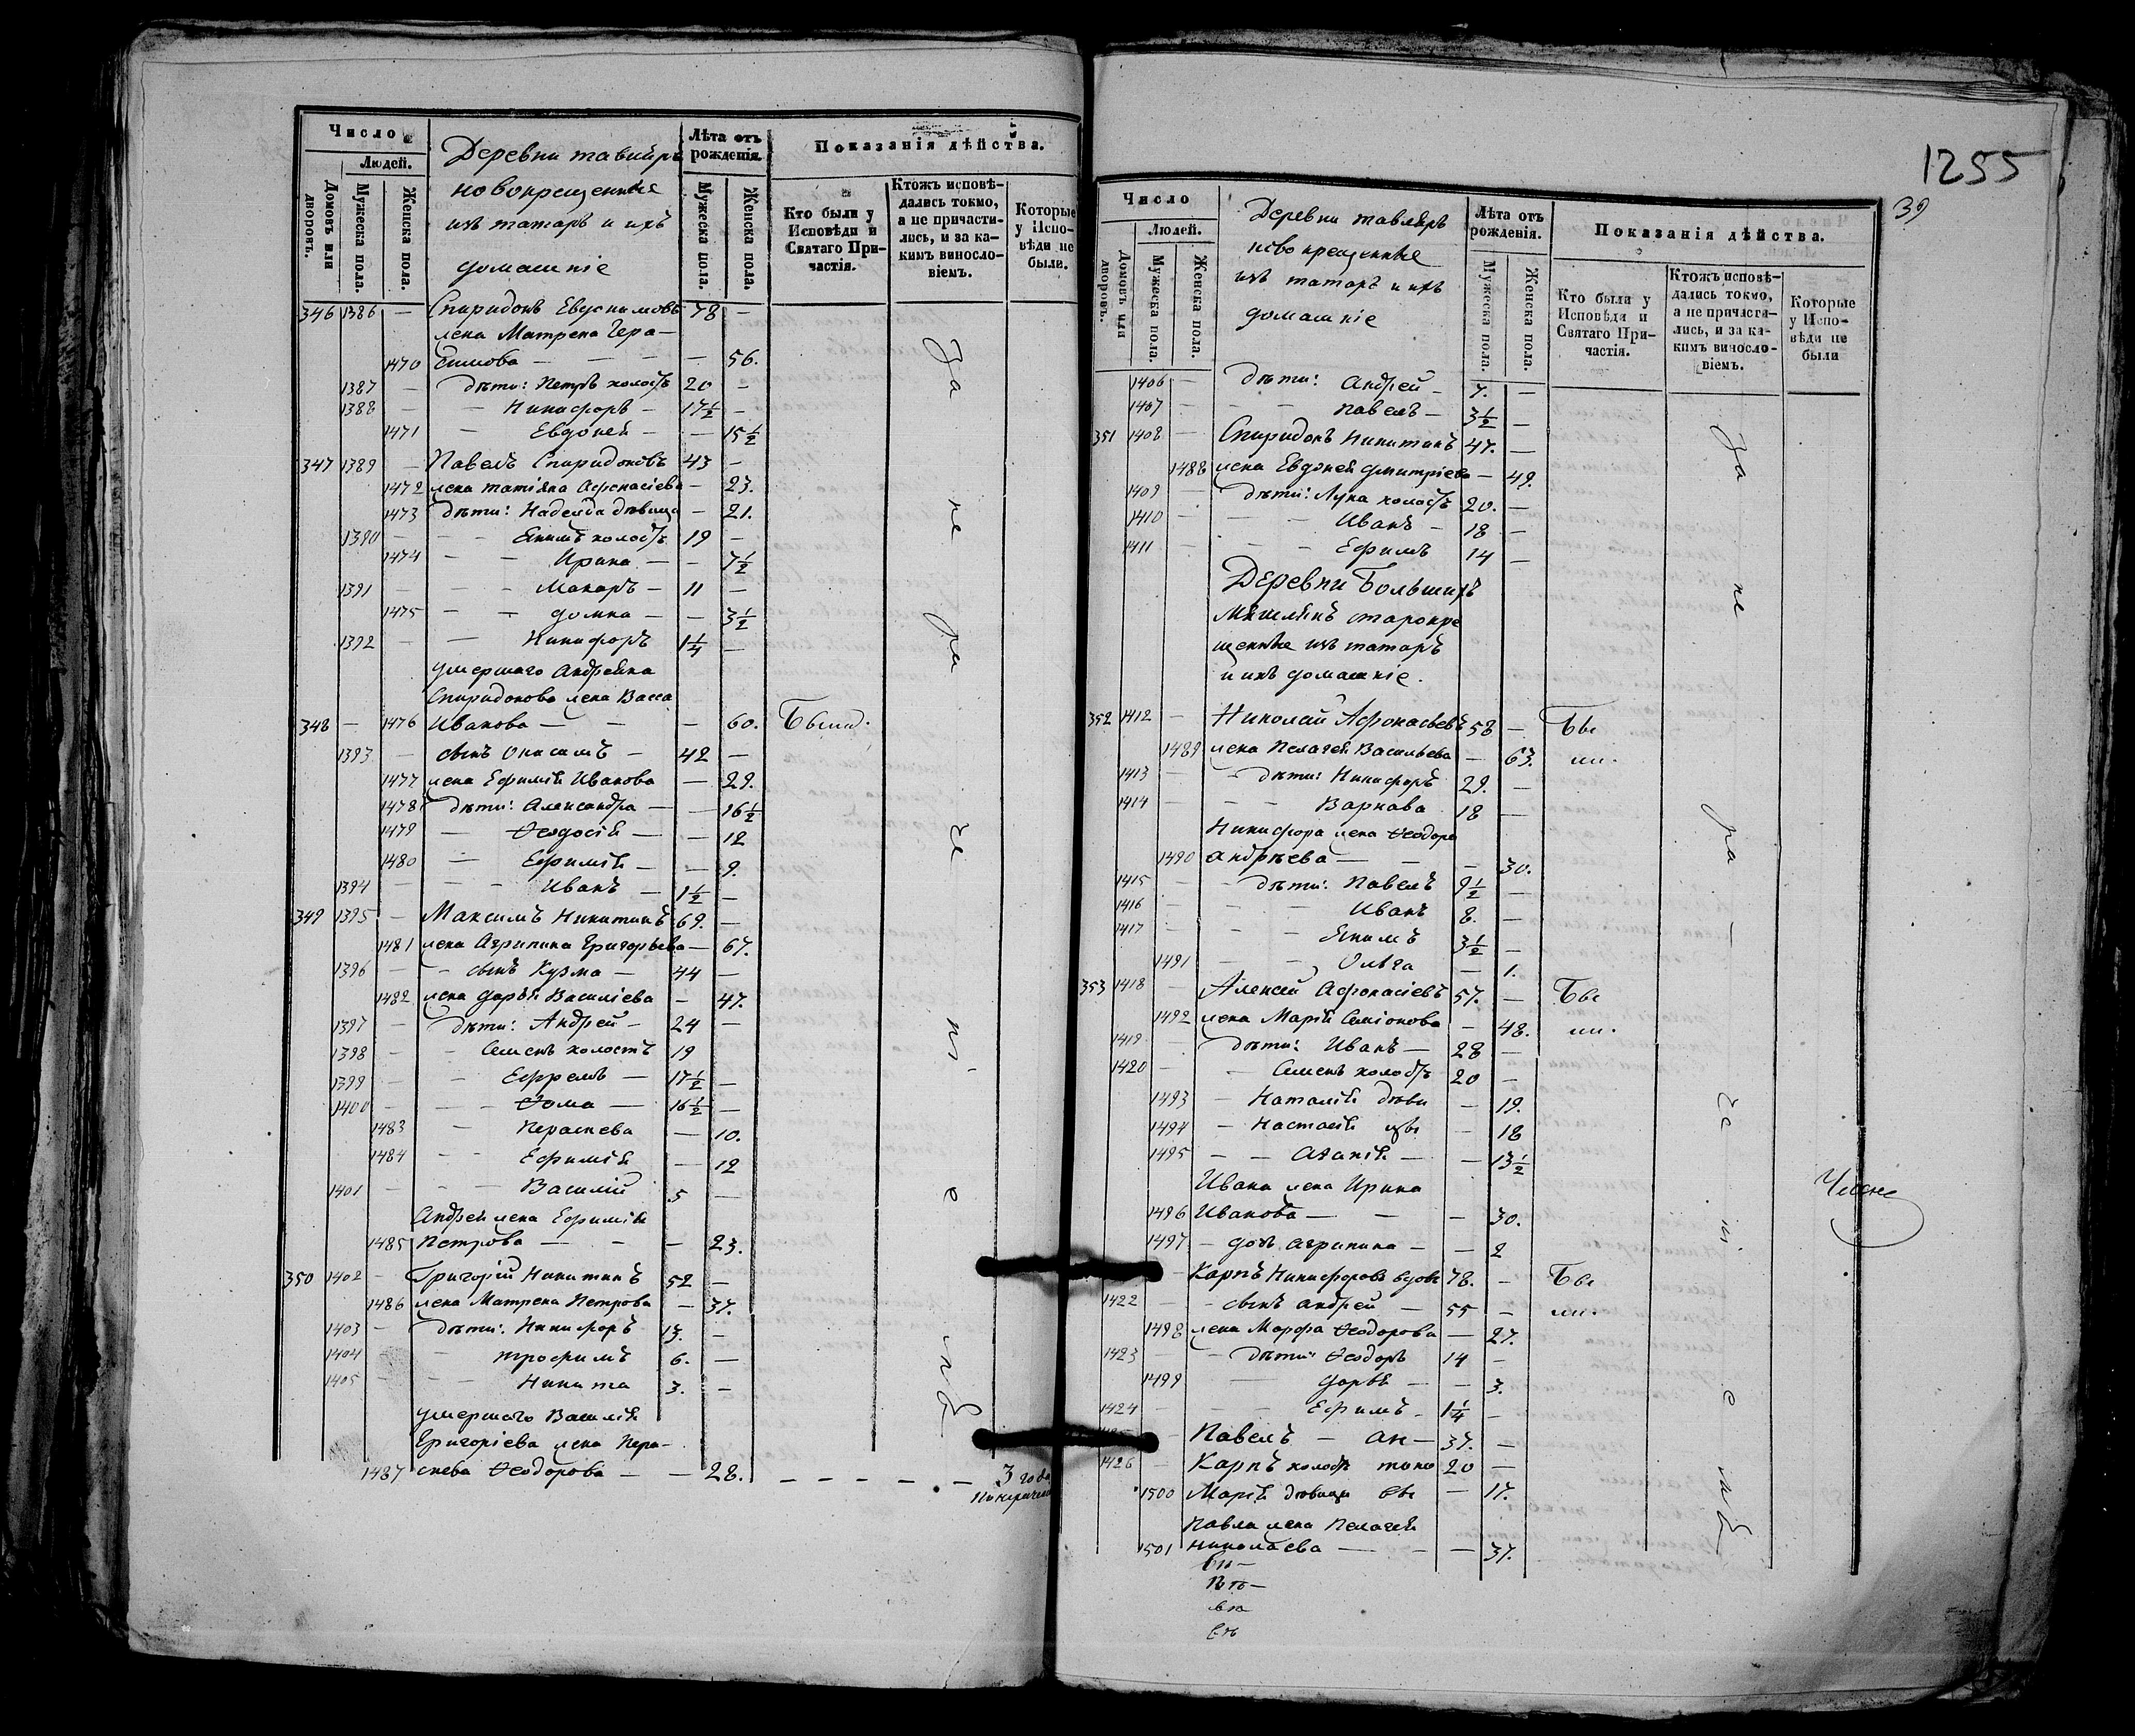 Число
Людей.
Домовъ или дворовъ.
Мужеска пола.
Женска пола.
Деревни
новокрещенные
изъ татаръ и ихъ
домашніе
Лѣта отъ рожденія.
Мужеска пола.
Женска пола.
Показанія дѣйства.
Кто были у Исповѣди и Святаго Причастія.
Ктожъ исповѣдались токмо, а не причастились, и за какимъ винословіемъ.
Которые у Исповѣди не были.
346 1386 — Спиридонъ Евдокимовъ 78 —
жена Матрена Гера-
1470 симова — — — — 56.
1387 — дѣти: Петръ холостъ 20 —
1388 — — Никифоръ — 17½ —
1471 — Евдокея — — 15½
347 1389 — Павелъ Спиридоновъ 43 —
1472 жена Татіяна Афонасіева — 23.
1473 дѣти: Надежда дѣвица — 21.
1390 — — — Якимъ холостъ 19 —
1474 — — Ирина — — 7½
1391 — — — Макаръ — 11 —
1475 — — Домна — — 3½
1392 — — Никифоръ 1¼ —
умершаго Андреяна
Спиридонова жена Васса
348 — 1476 Иванова — — — 60. Были.
1393 — сынъ Онисимъ — 42 —
1477 жена Ефимія Иванова — 29.
1478 дѣти: Александра — — 16½
1479 — Ѳеодосія — — 12
1480 — Ефимія — — 9.
1394 — — — Иванъ — 1½ —
349 1395 — Максимъ Никитинъ 69. —
1481 жена Агрипина Григорьева — 67.
1396 — — сынъ Кузма — 44 —
1482 жена Дарья Василіева — 47.
1397 — дѣти: Андрей — 24 —
1398 — — Семенъ холостъ 19
1399 — — Ефремъ — 17½ —
1400 — — — Ѳома — 16½ —
1483 — Параскева — 10.
1484 — — Ефимія — 12
1401 — — — Василій 5 —
Андрея жена Ефимія
1485 Петрова — — — 23.
350 1402 — Григорій Никитинъ 52 —
1486 жена Матрена Петрова — 37.
1403 — дѣти: Никифоръ 13. —
1404 — Трофимъ 6. —
1405 — — — Никита 3. —
умершаго Василія
Григоріева жена Пара-
1487 скева Ѳеодорова — — 28. — — — — — 3 года
За не ра че ні е мъ
1255
39
Число
Людей.
Домовъ или дворовъ.
Мужеска пола.
Женска пола.
Деревни
новокрещенные
изъ татаръ и ихъ
домашніе
Лѣта отъ рожденія.
Мужеска пола.
Женска пола.
Показанія дѣйства.
Кто были у Исповѣди и Святаго Причастія.
Ктожъ исповѣдались токмо, а не причастились, и за какимъ винословіемъ.
Которые у Исповѣди не были
1406 — дѣти: Андрей — 7. —
1407 — — — Павелъ — 3½ —
351 1408 — Спиридонъ Никитинъ 47. —
1488 жена Евдокея Дмитріева — 49.
1409 — дѣти: Лука холостъ 20. —
1410 — — — Иванъ — 18 —
1411 — — — Ефимъ 14 —
Деревни Большихъ
Мяшлякъ старокре
щенные изъ татаръ
и ихъ домашніе.
352 1412 — Николай Афонасьевъ 58 — Бы
1489 жена Пелагея Васильева — 63. ли.
1413 — — дѣти: Никифоръ 29. —
1414 — — — Варнава 18 —
Никифора жена Ѳеодора
1490 Андрѣева — — — 30.
1415 — — дѣти: Павелъ 9½ —
1416 — — — Иванъ 8. —
1417 — — — Якимъ 3½ —
1491 — — Ольга — 1.
353 1418 — Алексей Афонасіевъ 57. — Бы
1492 жена Марія Семіонова — 48. ли.
1419 — дѣти: Иванъ — 28 —
1420 — — Семенъ холостъ 20 —
1493 — Наталія дѣви — 19.
1494 — Настасія цы — 18
1495 — — Агапія — — 13½
Ивана жена Ирина
1496 Иванова — — — 30.
1497 — дочь Агрипина — — 2
— Карпъ Никифоровъ вдовъ 78. — Бы
1422 — — сынъ Андрей — 55 — ли.
1498 жена Марфа Ѳеодорова — 27.
1423 — — дѣти: Ѳеодоръ 14 —
1499 — Дарья — — 3.
1424 — — — Ефимъ — 1¼ —
— Павелъ — 37. —
1426 — Карпъ холостъ 20 —
1500 Марія дѣвица — 17.
Павла жена Пелагея
1501 Николаева — — — 37.
За не ра — че ні е мъ